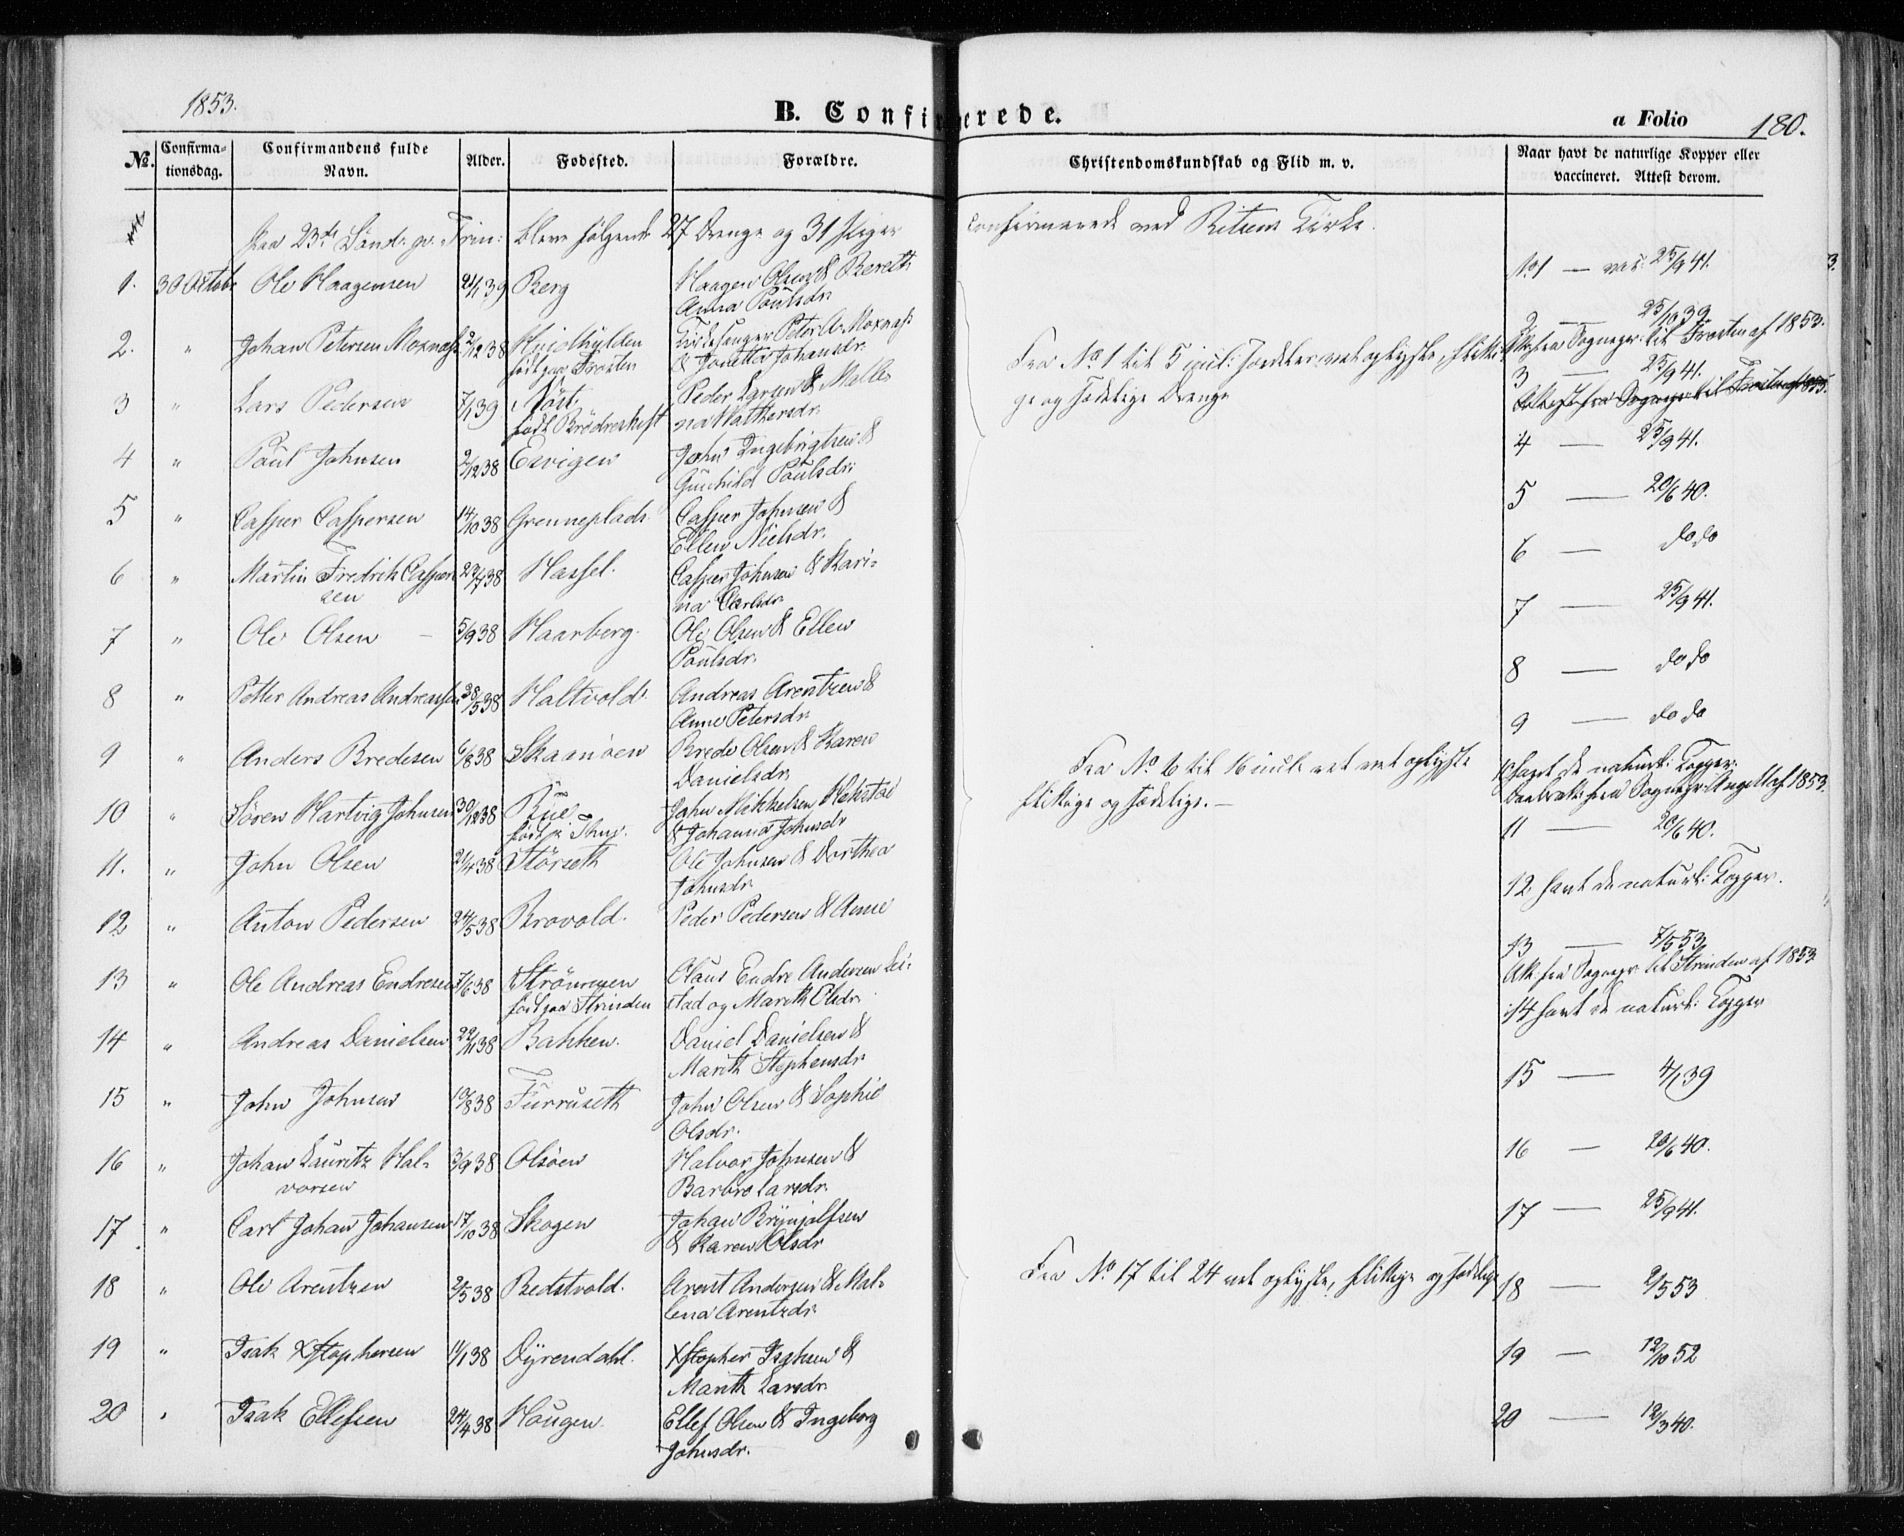 1853.
B. Confirmerede.
a Folio 180.
No. Confirmationsdag. Confirmandens fulde Navn. Alder. Fødested. Forældre. Christendomskundskab og Flid m. v. Naar havt de naturlige Kopper eller vaccineret. Attest derom.
Paa 23de Sönd: p: Trin: bleve følgende 27 Drenge og 31 Piger confirmerede ved Ritsem Kirke.
1. 30 Octobr Ole Haagensen 21/1 39 Berg Haagen Olsen & Bereth No 1 — vac: 25/9 41.
Anna Poulsdr.
2. " Johan Petersen Moxnæs 2/12 38 Hvidhylden Kirkesanger Peter A. Moxnæs 2 — 25/10 39
født paa Frosten & Jonetta Johansdr. Fra No. 1 til 5 incl: Attest fra Sognepr: til Frosten af 1853.
3 " Lars Pedersen 7/1 39 Røst: Peder Larsen & Malle- ge og sædelige Drenge 3 — 25/9 41.
født Brödreskift na Matthersdr. Attest fra Sognepr til Frosten af 1853.
4 " Poul Johnsen 2/12 38 Esvigen John Ingebrigtsen & 4 — 25/9 41.
Gunhild Poulsdr:
5 " Casper Caspersen 14/10 38 Grenneplads. Casper Johnsen & 5 — 20/6 40.
Ellen Nielsdr.
6 " Martin Fredrik Casper- 27/7 38 Hassel. Casper Johnsen & Kari- 6 — do do
sen na Carlsdr.
7 " Ole Olsen — 5/9 38 Haarberg. Ole Olsen & Ellen 7 — 25/9 41.
Poulsdr.
8 " Petter Andreas Andreassen 28/5 38 Haltvold. Andreas Arentzen & 8 — do do
Anne Petersdr.
9 " Anders Bredesen 6/8 38 Skamoen Brede Olsen & Karen 9 — do do
Danielsdr. Fra No. 6 til 16 incl:
10 " Sören Hartvig Johnsen 30/12 38 Rue John Mikkelsen flittige og sædelige. — 10 havt de naturl: Kopper.
& Johanna Johnsdr af 1853.
11. " John Olsen 21/4 38 Störseth Ole Johnsen & Dorthea 11 — 20/6 40.
Johnsdr.
12 " Anton Pedersen 24/5 38 Brovold. Peder Pedersen & Anne 12 havt de naturl: Kopper.
13 " Ole Andreas Endresen 7/6 38 Strömmen Olaus Endre Andersen Lei- 13 — 7/5 53
født paa Strinden stad og Mareth Olsdr. Att. fra Sognepr. til Strinden af 1853
14 " Andreas Danielsen 22/11 38 Bakken. Daniel Danielsen & 14 havt de naturl: Kopper
Mareth Stephensdr.
15 " John Johnsen 10/8 38 Furruseth John Olsen & Sophie 15 — 4/1 39
Olsdr.
16 " Johan Lauritz Hal- 3/9 38 Olsöen Halvor Johnsen & 16 — 20/6 40.
vorsen Barbro Larsdr.
17 " Carl Johan Johansen 17/10 38 Skogen Johan Brynjolfsen 17 — 25/9 41.
& Karen Olsdr
18 " Ole Arentzen 2/5 38 Bedstvold. Arent Andersen & Mal- Fra No. 17 til 24 vel oplyste, flittige og sædelige 18 — 2/5 53
lena Arentzdr.
19 " Isak Xstophersen 11/1 38 Dyrendahl. Xstopher Isaksen & 19 — 12/10 52
Mareth Larsdr.
20 " Isak Ellefsen 24/4 38 Haugen. Ellef Olsen & Ingeborg 20 — 12/3 40.
Johnsdr.